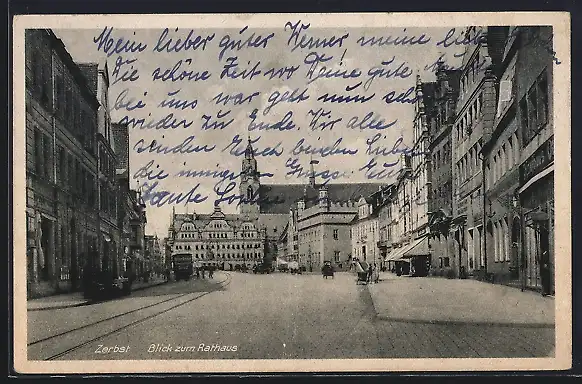 Mein lieber guter Werner meine
die schöne Zeit wo Deine gute
bei uns war geht nun
wieder zu Ende. Wir alle
senden Euch beiden liebe
die innigen Grüsse
Tante
Zerbst Blick zum Rathaus